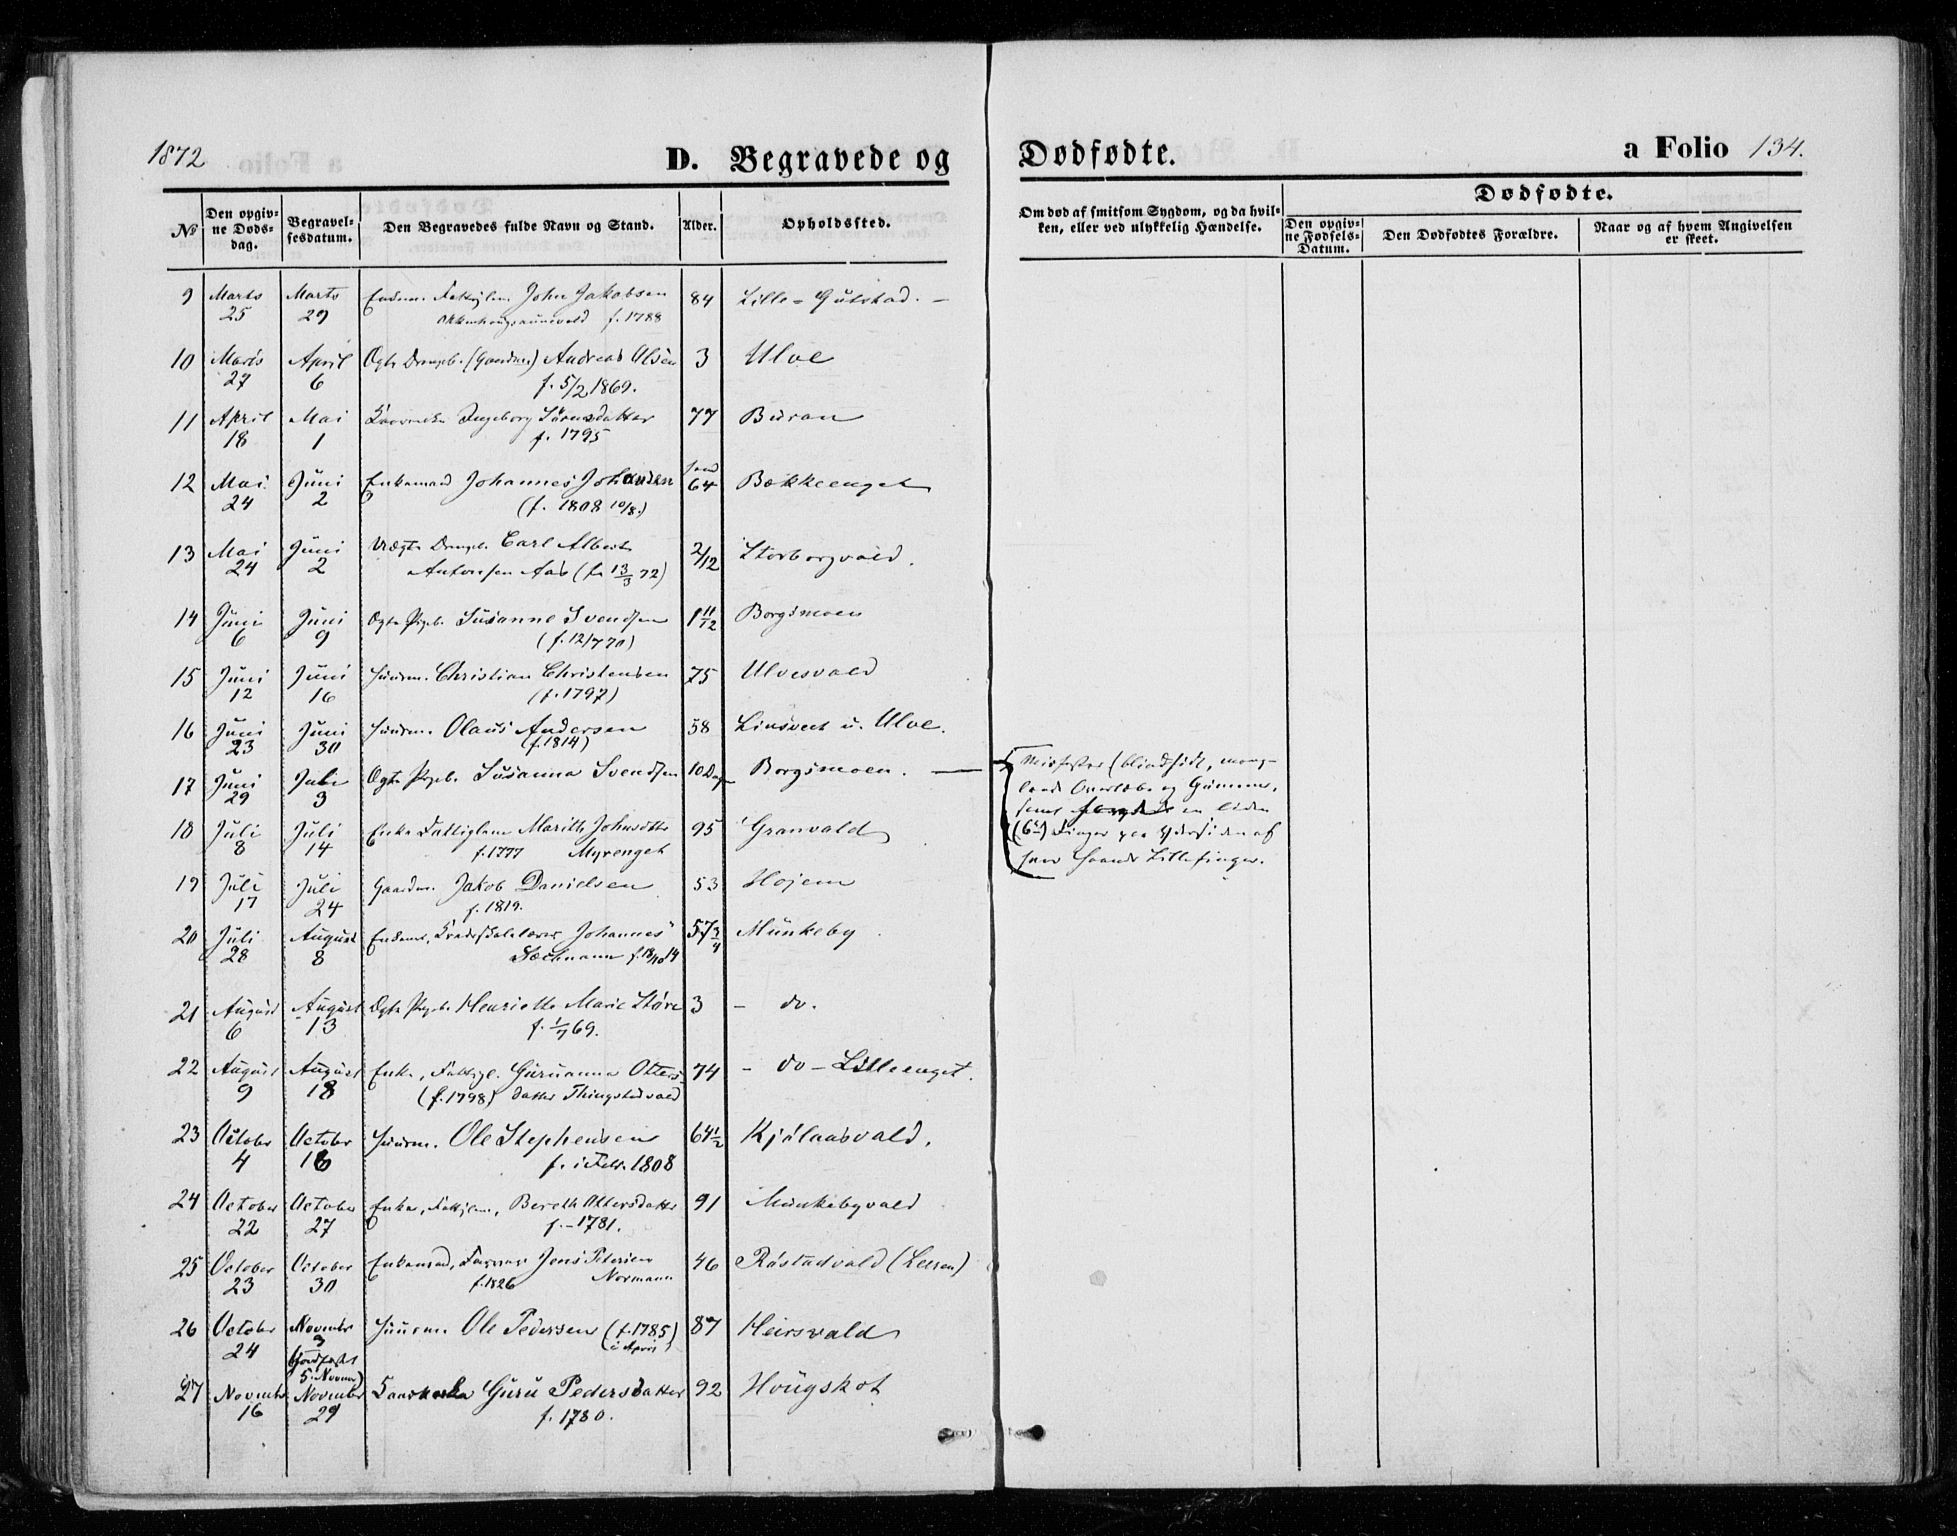 1872
D. Begravede og
Dødfødte.
a Folio 134.
No
Den opgiv-
ne Døds-
dag.
Begravel-
sesdatum.
Den Begravedes fulde Navn og Stand.
Alder.
Opholdssted.
Om død af smitsom Sygdom, og da hvil-
ken, eller ved ulykkelig Hændelse.
Dødfødte.
Den opgiv-
ne Fødsels-
Datum.
Den Dødfødtes Forældre.
Naar og af hvem Angivelsen
er skeet.
9 Marts Marts John Jakobsen 84 Lille-Gutstad. -
25 29 f. 1788
10 Marts April Ægte Drengeb. (Gaardm.) Andreas Olsen 3 Ulve
27 6 f. 5/2 1869.
11 April Mai Ingeborg Sørensdatter 77 Buran
18 1 f. 1795
12 Mai Juni Enkemand Johannes Johansen 64 Bækkeenget
24 2 (f. 1808 10/8.)
13 Mai Juni Uægte Drengeb. Carl Albert 2/12 Storborgvald.
24 2 Antonsen Aas (f. 13/3 72)
14 Juni Juni Ægte Pigeb. Susanne Svendsen 1 11/12 Borgsmoen
6 9 (f. 12/7 70)
15 Juni Juni Huusm. Christian Christensen 75 Ulvesvald
12 16 (f. 1797)
16 Juni Juni Huusm. Olaus Andersen 58 Linsvedt u. Ulve.
23 30 (f. 1814)
17 Juni Juli Ægte Pigeb. Susanna Svendsen 10 Dage Borgsmoen. -
29 3
Misfoster (blindfødt, mang-
lende Overlæbe og Gummer,
samt en liden
(6te) Finger paa Ydersiden af
hver Haands Lillefinger.
18 Juli Juli Enke Fattiglem Marith Johnsdtr 95 Granvald
8 14 f. 1777 Myrenget
19 Juli Juli Gaardm. Jakob Danielsen 53 Hojem
17 24 f. 1819.
20 Juli August Enkem., Johannes 57 3/4 Munkeby
28 8 f. 18/10 14
21 August August Ægte Pigeb. Henriette Marie Støre 3 - do.
6 13 f. 1/7 69.
22 August August Enke, Fattigl. Guruanna Otters- 74 - do - Lilleenget.
9 18 (f. 1798) datter Thingstadvald
23 October October Huusm. Ole Stephensen 64 1/2 Kjølaasvald.
4 16 f. i Febr. 1808
24 October October Enke, Fattiglem, Bereth Ottersdatter 91 Munkebyvald
22 27 f. - 1781.
25 October October Enkemand, Jens Petersen 46 Røstadvald (Leiren)
23 30 f. 1826 Normann
26 October November Huusm. Ole Pedersen (f. 1785) 87 Heirsvald
24 3 (i April)
(Jordfæstet
5 Novmr)
27 November November Guru Pedersdatter 92 Hougskot
16 29 f. 1780.